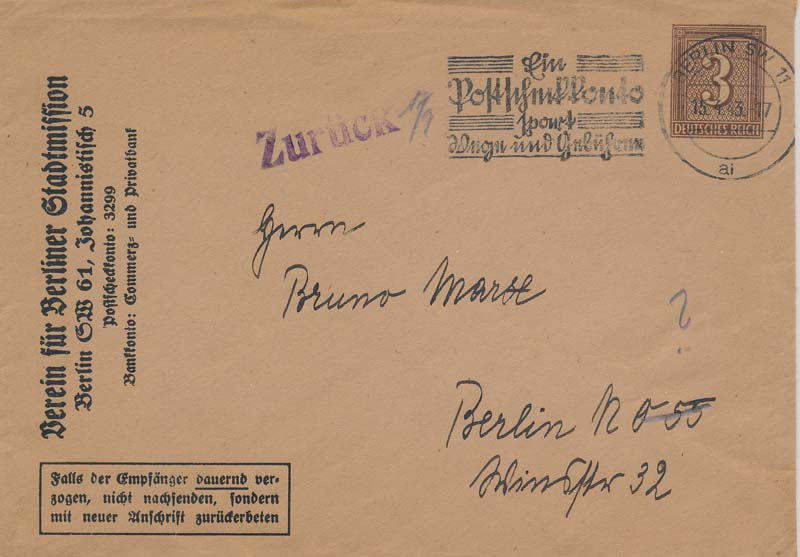 Verein für Berliner Stadtmission
Berlin SW 61, Johannistisch 5
Postscheckkonto: 3299
Bankkonto: Commerz- und Privatbank
Zurück
Ein
Postscheckkonto
spart
Wege und Gebühren
BERLIN SW 11
ai
3
DEUTSCHES REICH
Herrn
Bruno
?
Berlin NO 55
Winsstr 32
Falls der Empfänger dauernd ver-
zogen, nicht nachsenden, sondern
mit neuer Anschrift zurückerbeten